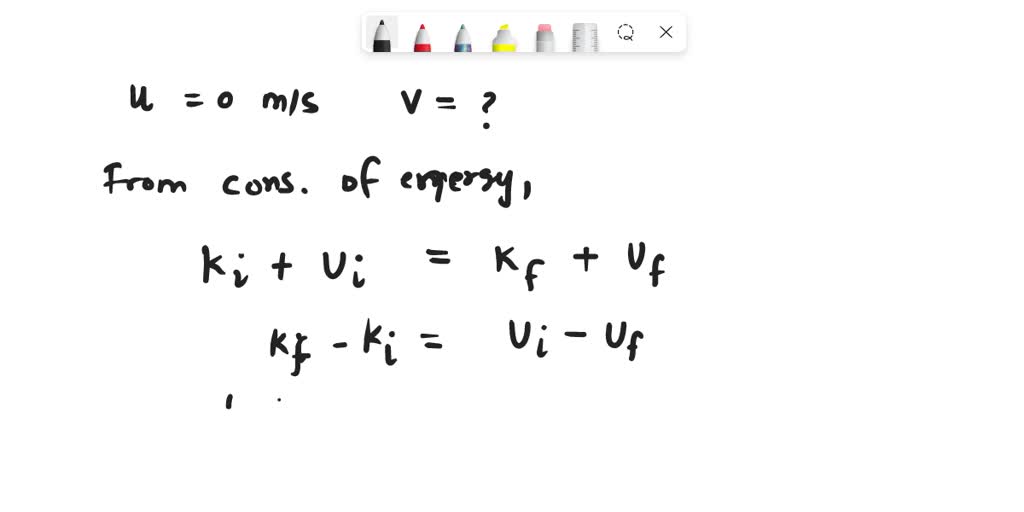 u = 0 m/s V = ?
From cons. of energy,
Ki + Ui = Kf + Uf
Kf - Ki = Ui - Uf